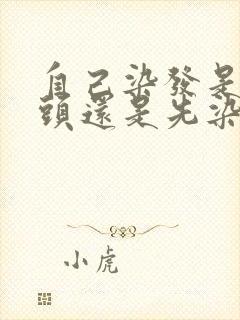 自己染發是
頭還是先染
小虎